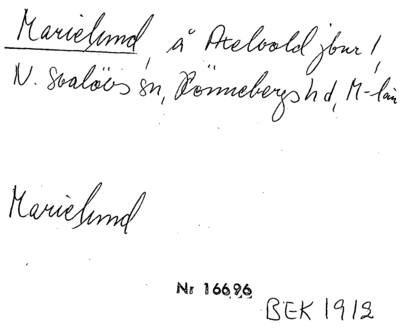 Marielund, å Axelvold jbur 1,
N. Svalövs sn, Rönnebergs hd, M-län
Marielund
Nr 16696
BEK 1912